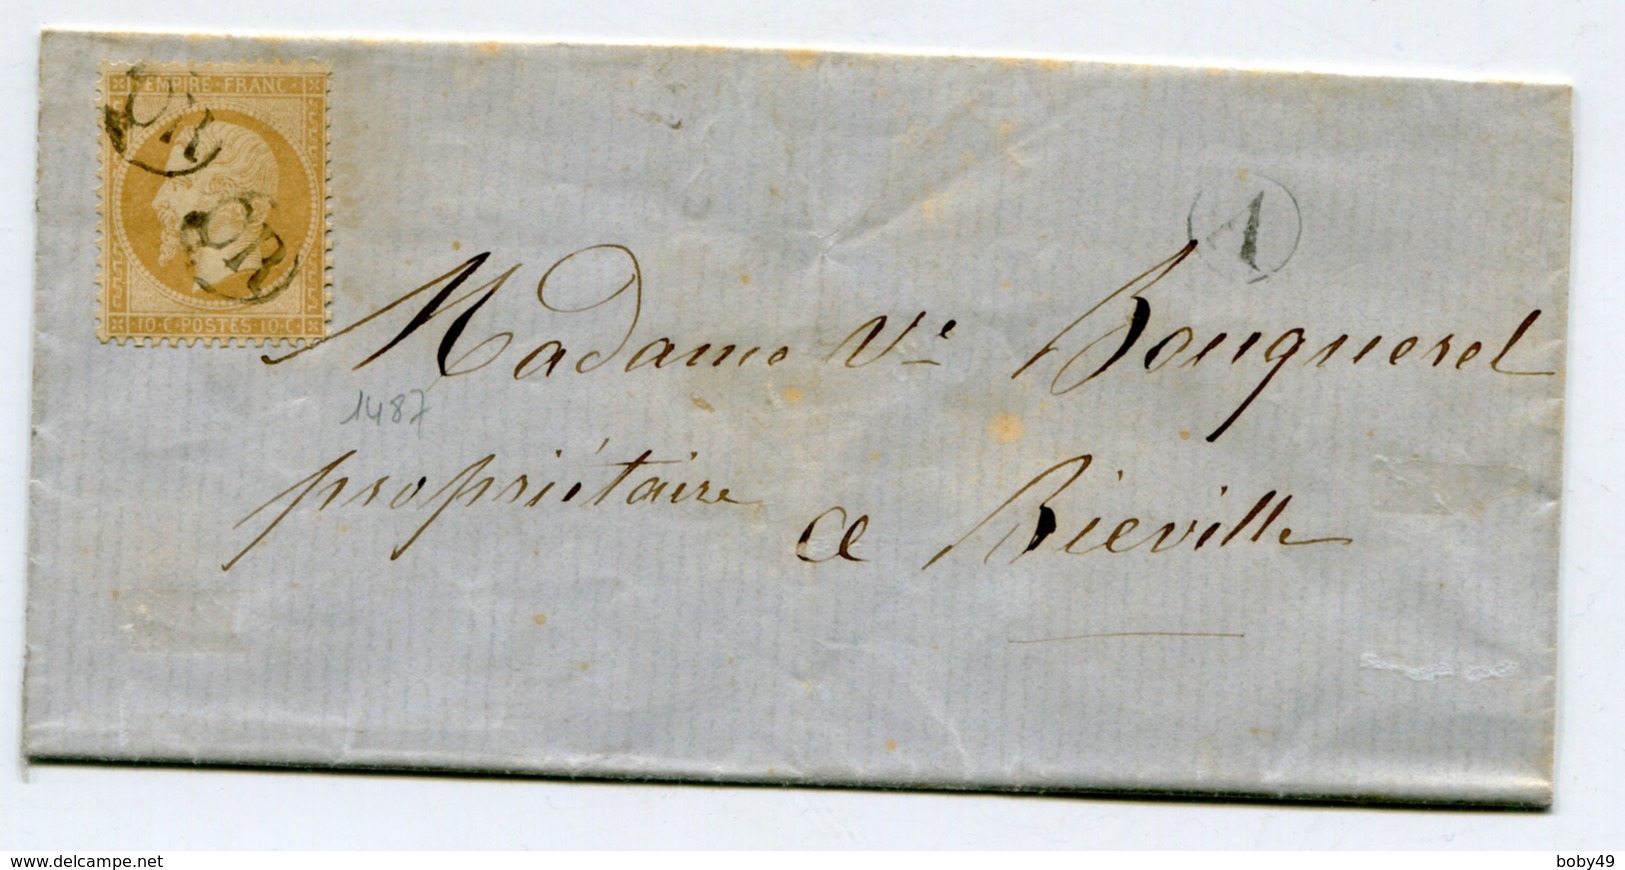 EMPIRE · FRANC
OR
OR
10·C·POSTES·10·C·
A
Madame Vᵉ Bouquerel
1487
propriétaire
a Biéville
www.delcampe.net
boby49